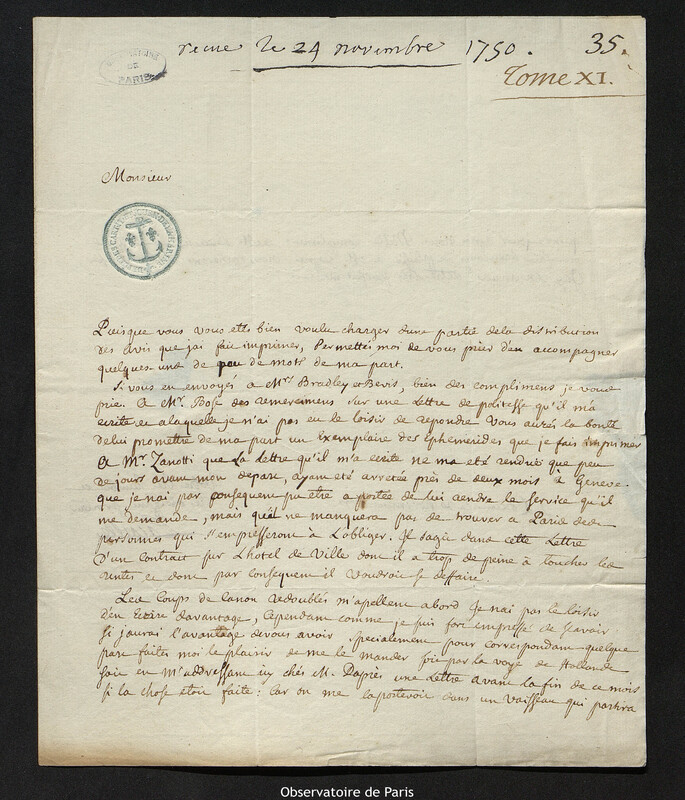 recue le 24 novembre 1750. 35.
Tome XI.
OBSERVATOIRE
DE
PARIS
Monsieur
Puisque vous vous etes bien voulu charger d'une partie dela distribution
des avis que jai fait imprimer, Permettés moi de vous prier d'en accompagner
quelques uns de peu de mots de ma part.
Si vous en envoyés a Mrs Bradley et Bevis, bien des complimens je vous
prie. A Mr. Bose des remercimens sur une Lettre de politesse qu'il m'a
ecrite et alaquelle je n'ai pas eu le loisir de repondre Vous aurés la bonté
de lui promettre de ma part un Exemplaire des Ephemerides que je fais imprimer
A Mr. Zanotti que la lettre qu'il m'a ecrite ne ma eté rendue que peu
de jours avant mon depart, ayant eté arretée près de deux mois à Geneve.
que je nai par consequent pu etre a portée de lui rendre le service qu'il
me demande, mais qu'il ne manquera pas de trouver a Paris des
personnes qui s'empresseront à Lobliger. Il sagit dans cette Lettre
D'un contrat sur Lhotel de Ville dont il a trop de peine à toucher les
rentes et dont par consequent il voudroit se deffaire.
Les Coups de Canon redoublés m'apellent abord Je nai pas le loisir
d'en Ecrire davantage, Cependant comme je suis fort empressé de sçavoir
si jaurai l'avantage de vous avoir specialement pour correspondant quelque
part faites moi le plaisir de me le mander soit par la voye de Hollande
soit en m'addressant icy chés M. Daprés une Lettre avant la fin de ce mois
si la chose etoit faite: car on me laporteroit dans un Vaisseau qui partira
Observatoire de Paris